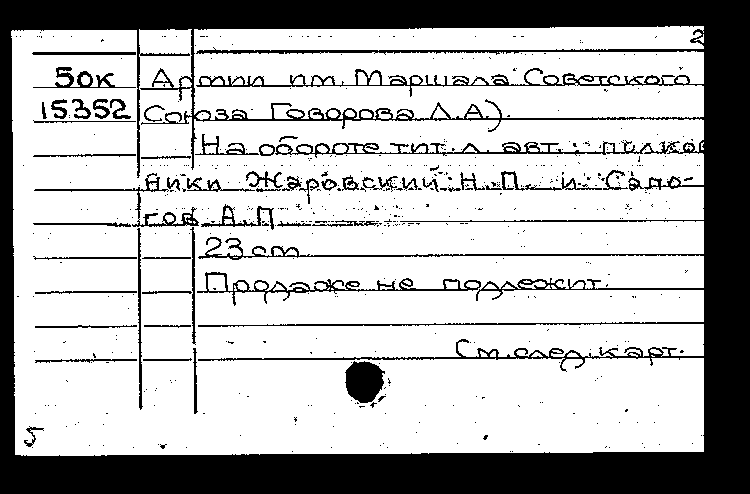 2
50к Армии им. Маршала Советского
15352 Союза Говорова Л.А.).
На обороте тит. л. авт.: полков
ники Жаровский Н.П. и Сапо-
гов А.П.
23 cm
Продаже не подлежит.
См. след. карт.
5